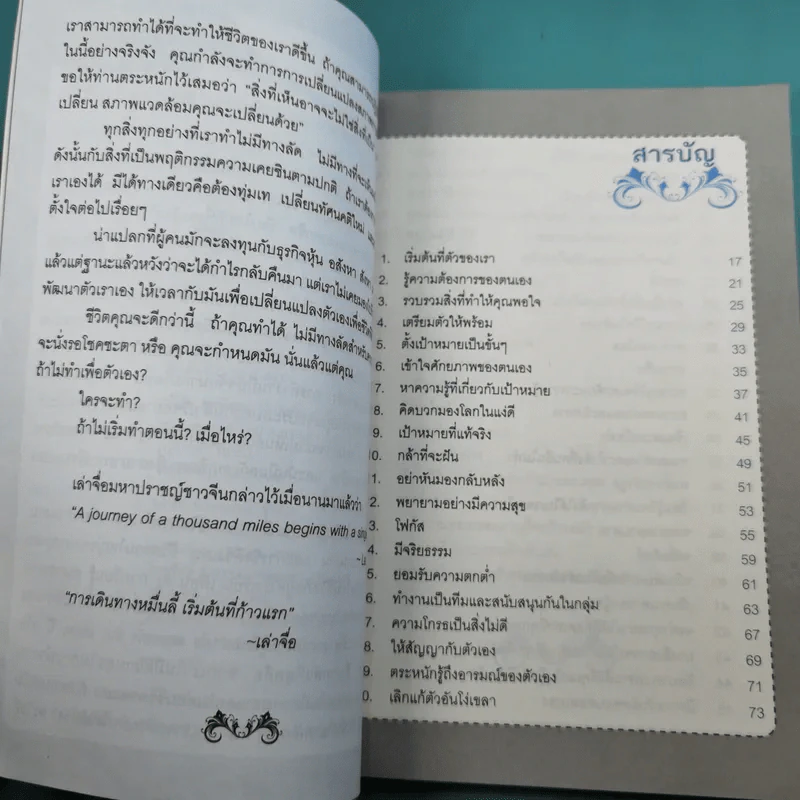 เราสามารถทำได้ที่จะทำให้ชีวิตของเราดีขึ้น ถ้าคุณสามารถ
ในนี้อย่างจริงจัง คุณกำลังจะทำการการเปลี่ยนแปลงสภาพ
ขอให้ท่านตระหนักไว้เสมอว่า "สิ่งที่เห็นอาจจะไม่ใช่สิ่งที่
เปลี่ยน สภาพแวดล้อมคุณจะเปลี่ยนด้วย"
ทุกสิ่งทุกอย่างที่เราทำไม่มีทางลัด ไม่มีทางที่จะ
ดังนั้นกับสิ่งที่เป็นพฤติกรรมความเคยชินตามปกติ ถ้าเรา
เราเองได้ มีได้ทางเดียวคือต้องทุ่มเท เปลี่ยนทัศนคติใหม่
ตั้งใจต่อไปเรื่อยๆ
น่าแปลกที่ผู้คนมักจะลงทุนกับธุรกิจหุ้น อสังหา
แล้วแต่ฐานะแล้วหวังว่าจะได้กำไรกลับคืนมา แต่เราไม่เคย
พัฒนาตัวเราเอง ให้เวลากับมันเพื่อเปลี่ยนแปลงตัวเองเพื่อ
ชีวิตคุณจะดีกว่านี้ ถ้าคุณทำได้ ไม่มีทางลัดสำหรับ
จะนั่งรอโชคชะตา หรือ คุณจะกำหนดมัน นั่นแล้วแต่คุณ
ถ้าไม่ทำเพื่อตัวเอง?
ใครจะทำ?
ถ้าไม่เริ่มทำตอนนี้? เมื่อไหร่?
เล่าจื่อมหาปราชญ์ชาวจีนกล่าวไว้เมื่อนานมาแล้วว่า
"A journey of a thousand miles begins with a
"การเดินทางหมื่นลี้ เริ่มต้นที่ก้าวแรก"
~เล่าจื่อ
สารบัญ
1. เริ่มต้นที่ตัวของเรา 17
2. รู้ความต้องการของตนเอง 21
3. รวบรวมสิ่งที่ทำให้คุณพอใจ 25
4. เตรียมตัวให้พร้อม 29
5. ตั้งเป้าหมายเป็นขั้นๆ 33
6. เข้าใจศักยภาพของตนเอง 35
7. หาความรู้ที่เกี่ยวกับเป้าหมาย 37
8. คิดบวกมองโลกในแง่ดี 41
9. เป้าหมายที่แท้จริง 45
0. กล้าที่จะฝัน 49
1. อย่าหันมองกลับหลัง 51
2. พยายามอย่างมีความสุข 53
3. โฟกัส 55
4. มีจริยธรรม 59
5. ยอมรับความตกต่ำ 61
6. ทำงานเป็นทีมและสนับสนุนกันในกลุ่ม 63
7. ความโกรธเป็นสิ่งไม่ดี 67
8. ให้สัญญากับตัวเอง 69
9. ตระหนักรู้ถึงอารมณ์ของตัวเอง 71
0. เลิกแก้ตัวอันโง่เขลา 73